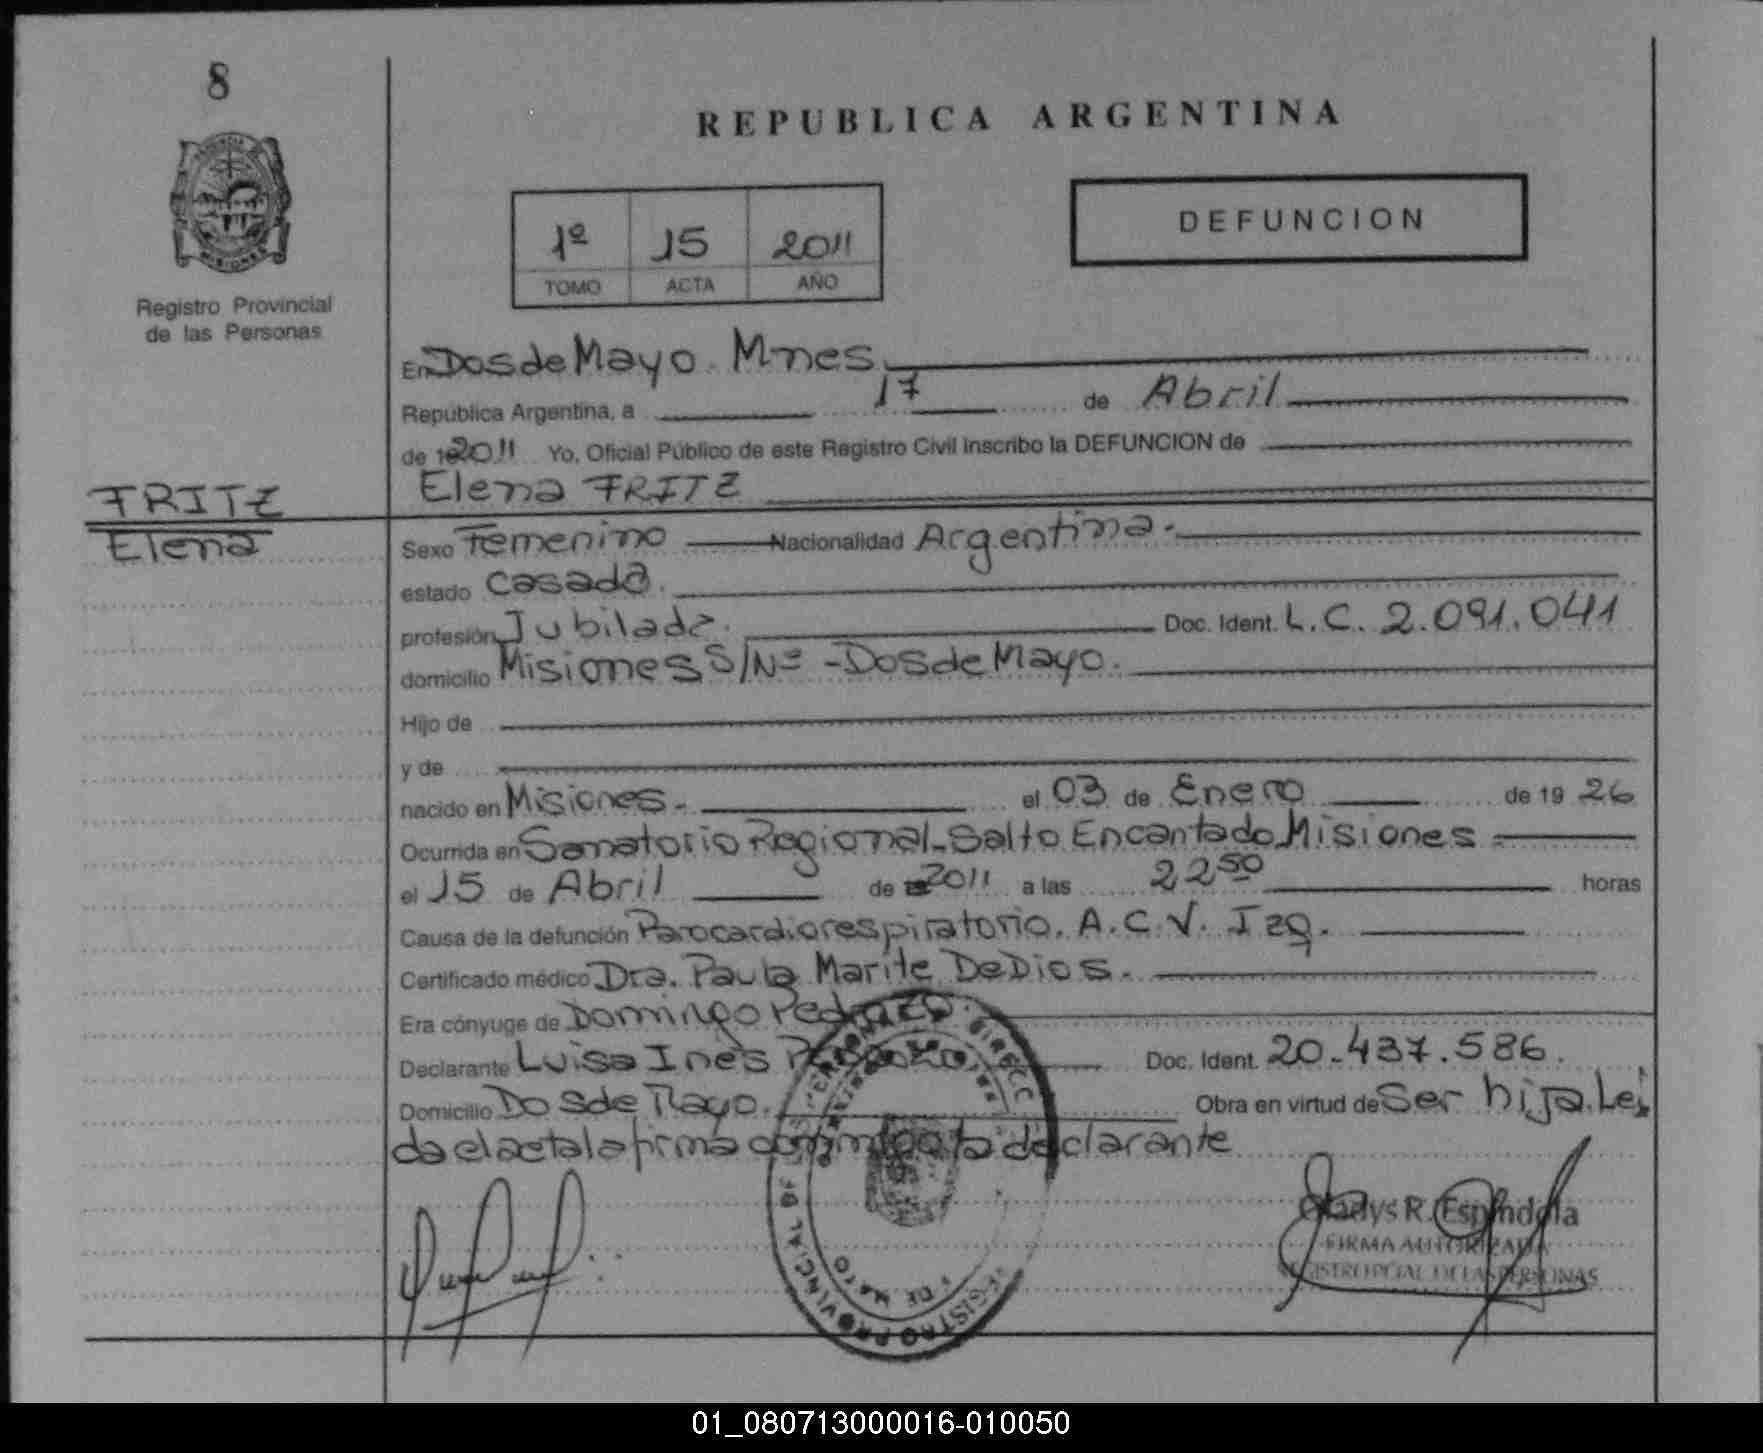 8
REPUBLICA ARGENTINA
1º 15 2011
TOMO ACTA AÑO
DEFUNCION
Registro Provincial
de las Personas
En Dos de Mayo Mnes.
República Argentina, a 17 de Abril
de 19 2011 Yo, Oficial Público de este Registro Civil inscribo la DEFUNCION de
FRITZ
Elena FRITZ
Elena
Sexo Femenino Nacionalidad Argentina.
estado Casada.
profesión Jubilada. Doc. Ident. L.C. 2.091.041
domicilio Misiones S/Nº - Dos de Mayo.
Hijo de
y de
nacido en Misiones. el 03 de Enero de 19 26
Ocurrida en Sanatorio Regional - Salto Encantado Misiones
el 15 de Abril de 2011 a las 22 50 horas
Causa de la defunción Parocardiorespiratorio. A.C.V. Izq.
Certificado médico Dra. Paula Marite DeDios.
Era cónyuge de Domingo Pedrozo.
Declarante Luisa Ines Pedrozo Doc. Ident. 20.437.586.
Domicilio Dos de Mayo. Obra en virtud de Ser hija. Lei
da el acta la firma la declarante
REGISTRO PROVINCIAL DE LAS PERSONAS
DE MAYO
Gladys R. Espindola
FIRMA AUTORIZADA
REGISTRO PCIAL. DE LAS PERSONAS
01_080713000016-010050